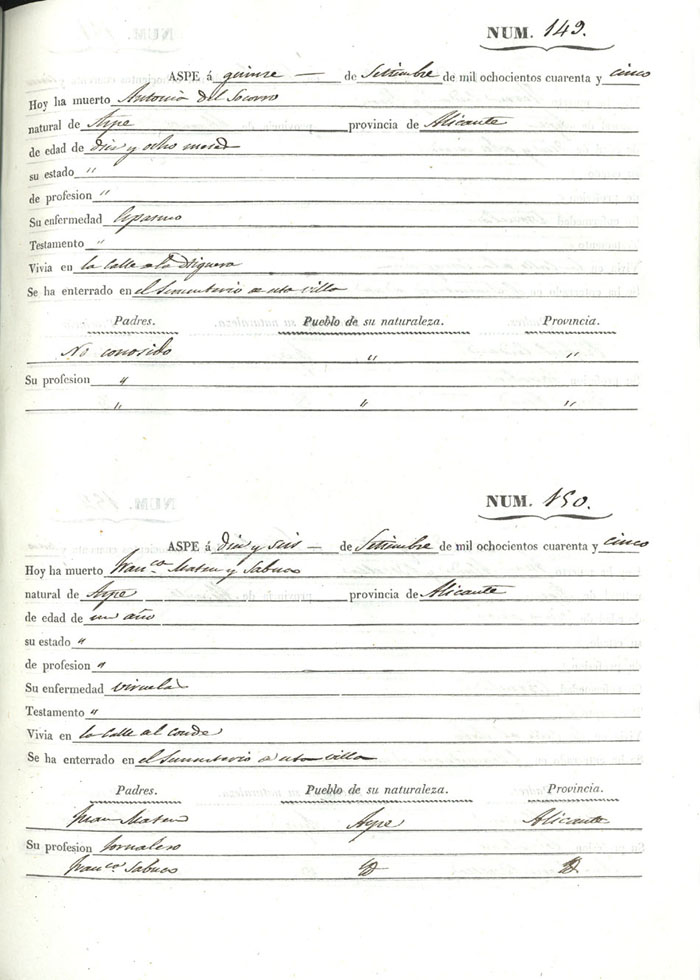 NUM. 149.
ASPE á quinse — de Setiembre de mil ochocientos cuarenta y cinco
Hoy ha muerto Antonia del Socorro
natural de Aspe provincia de Alicante
de edad de dies y ocho meses
su estado "
de profesion "
Su enfermedad Espasmo
Testamento "
Vivia en la Calle de la Higuera
Se ha enterrado en el Simenterio de esta villa
Padres. Pueblo de su naturaleza. Provincia.
No conosido " "
Su profesion "
" " "
NUM. 150.
ASPE á dies y seis — de Setiembre de mil ochocientos cuarenta y cinco
Hoy ha muerto Franco. Mateu y Sabuco
natural de Aspe provincia de Alicante
de edad de un año
su estado "
de profesion "
Su enfermedad viruelas
Testamento "
Vivia en la Calle del Conde
Se ha enterrado en el Simenterio de esta villa
Padres. Pueblo de su naturaleza. Provincia.
Juan Mateu Aspe Alicante
Su profesion Jornalero
Franca. Sabuco